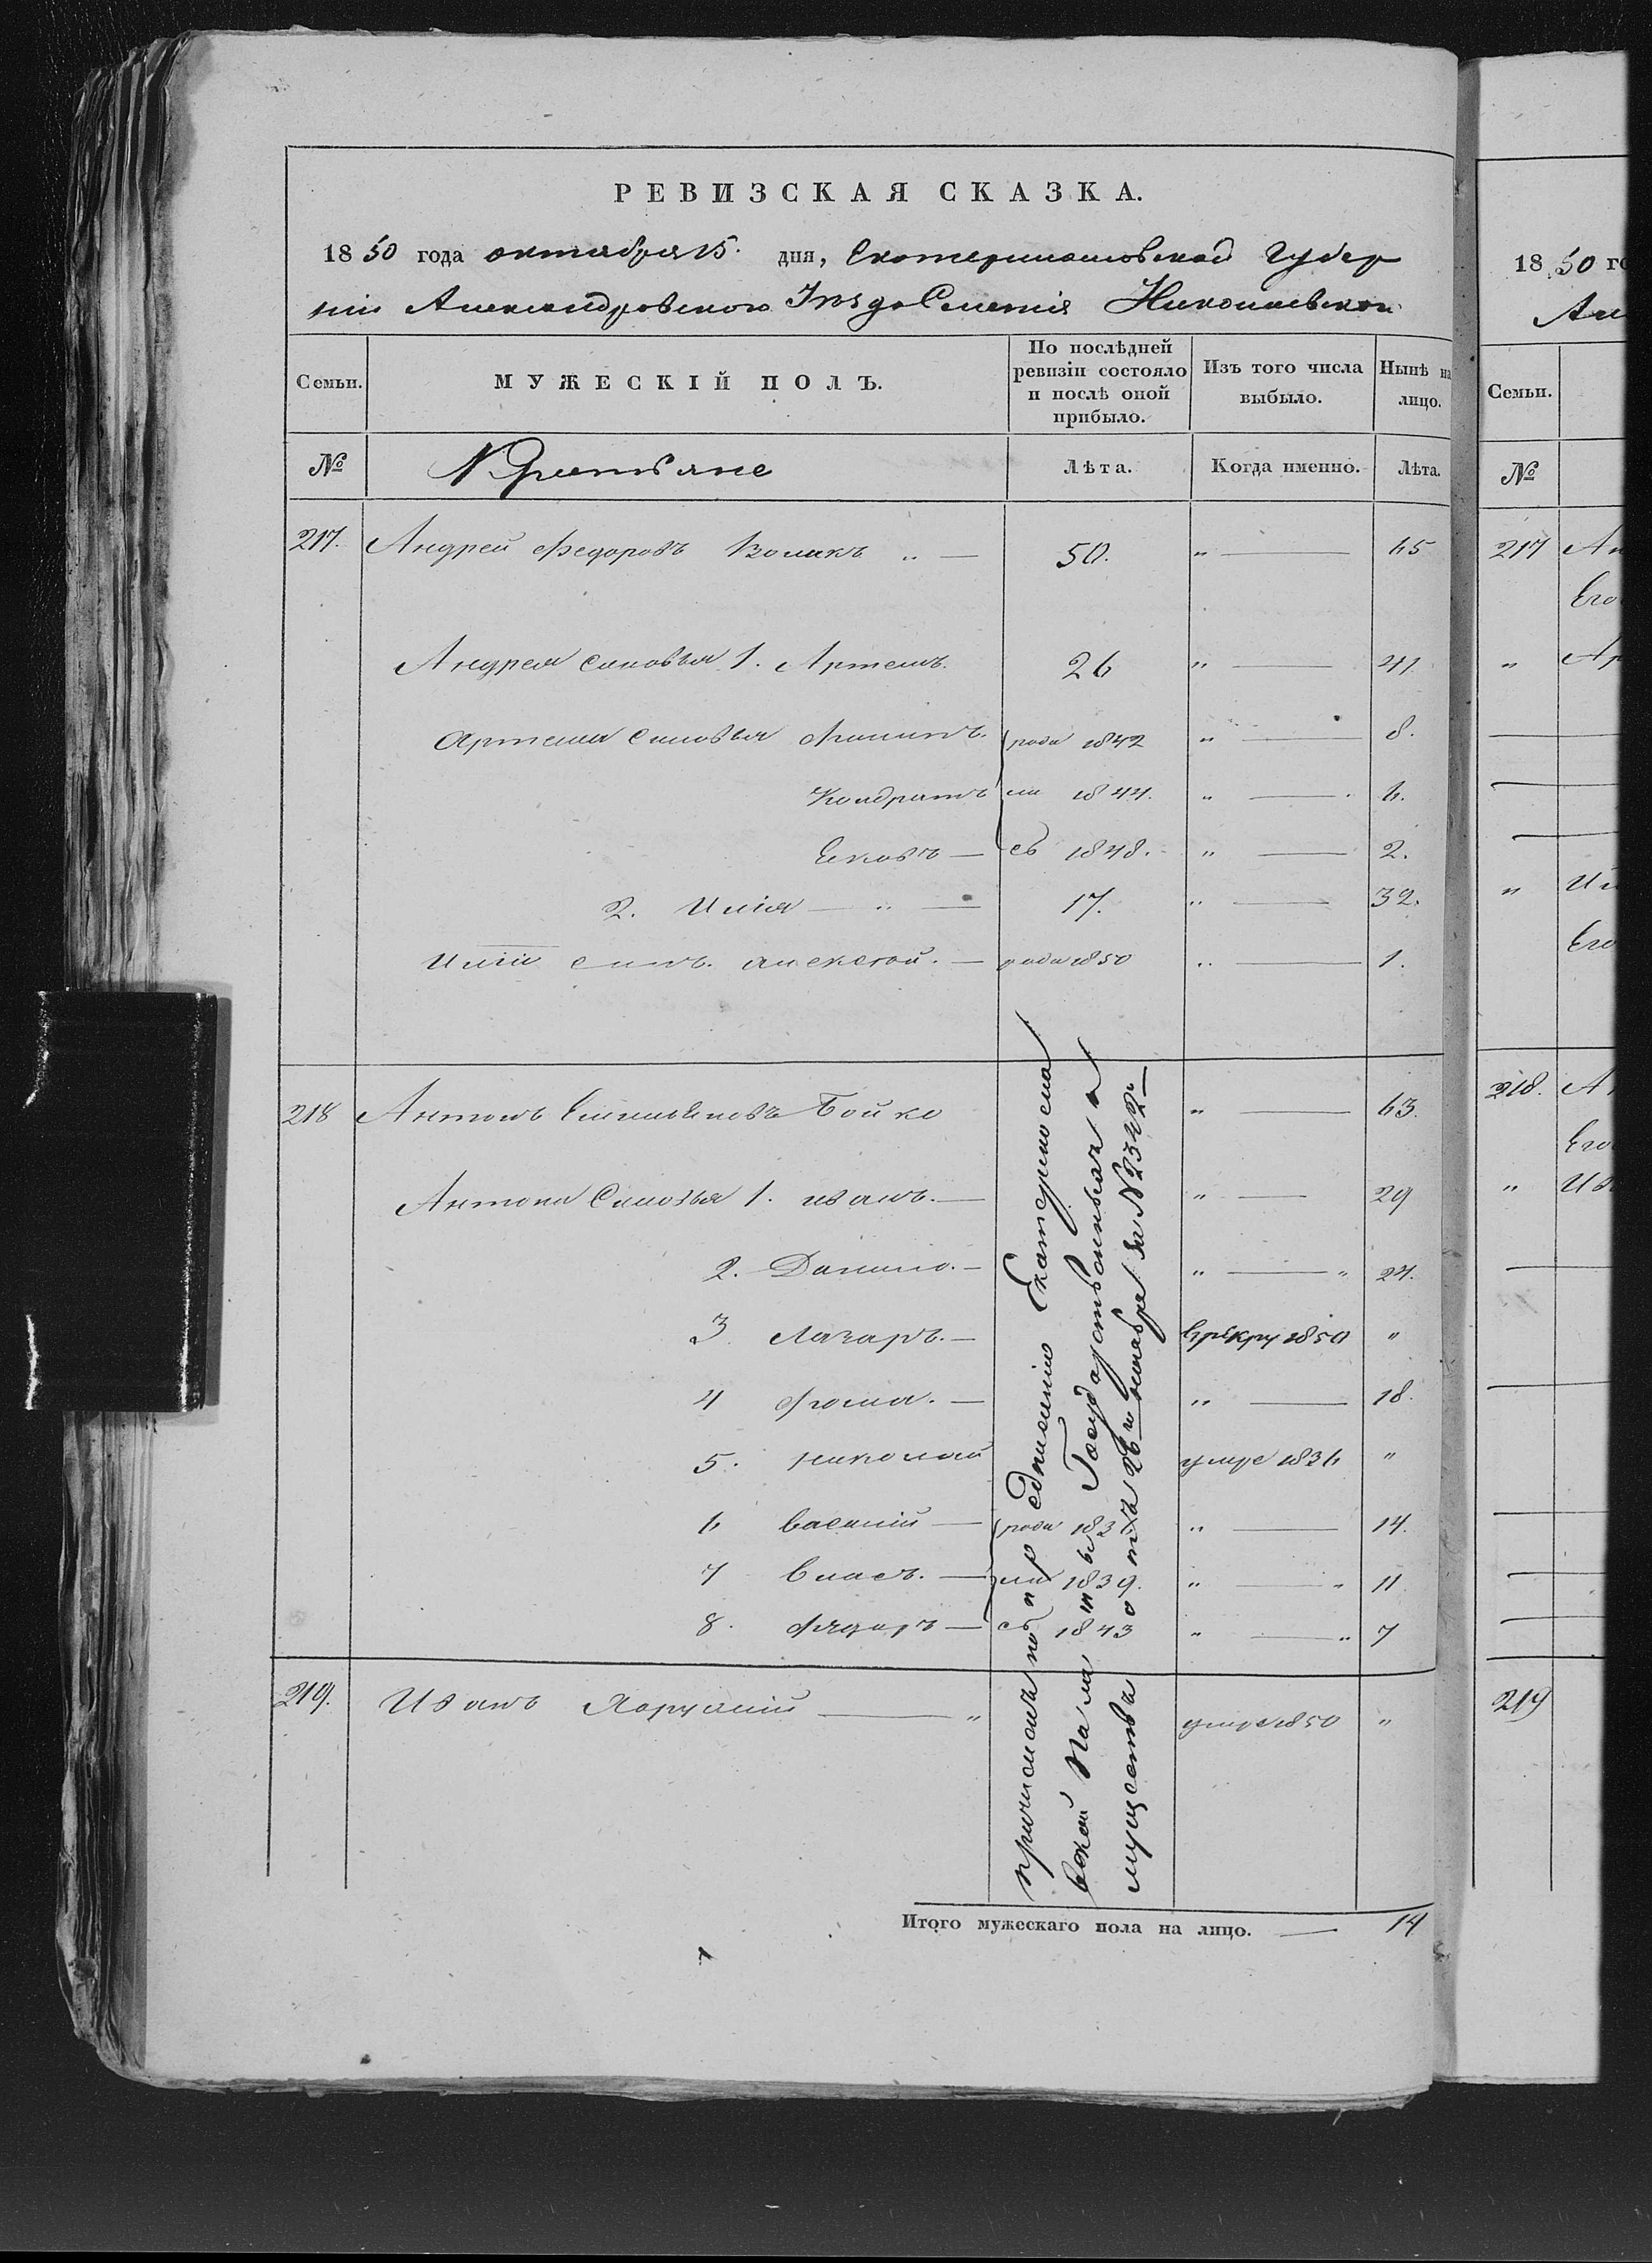 РЕВИЗСКАЯ СКАЗКА.
1850 года октября 15. дня, Екатеринославской Губер
ніи Александровского Уѣзда Селенія Николаевкои
Семьи. МУЖЕСКІЙ ПОЛЪ. По послѣдней ревизіи состояло и послѣ оной прибыло. Изъ того числа выбыло. Нынѣ на лицо.
№ Крестьяне Лѣта. Когда именно. Лѣта.
217. Андрей Федоровъ „ — 50. „ — 65
Андрея сыновья 1. Артемъ. 26 „ — 41.
Артема сыновья Филипъ. роди 1842 „ — 8.
Кондратъ ли 1844. „ — 6.
Ековъ — сь 1848. „ — 2.
2. Илія — „ — 17. „ — 32.
Иліи сынъ. алексѣй. — роди 1850 „ — 1.
218 Антонъ Бойко „ — 63.
Антона Сыновья 1. иванъ. — „ — 29
2. Данило. — „ — „ 24.
3 Лазаръ. — врекру 1850 „
4 Фома. — „ — 18.
5. николай умре 1836 „
6 василій — роди 183 „ — 14.
7 власъ. — ли 1839. „ — „ 11
8. Федоръ — с 1843 „ — „ 7
причисленъ по предписанію Екатериносла
вской Палаты Государственныхъ и
муществъ отъ 26го ноября за №
219. Иванъ — „ умре 1850 „
Итого мужескаго пола на лицо. — 14
1850 го
Семьи.
№
217 Ан
Его
„ Ар
„ Ил
Его
218. Ан
Его
„ Ив
219